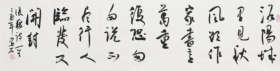 洛陽城
里見秋
風欲作
家書意
萬重
復恐匆
匆说不
尽行人
臨發又
開封